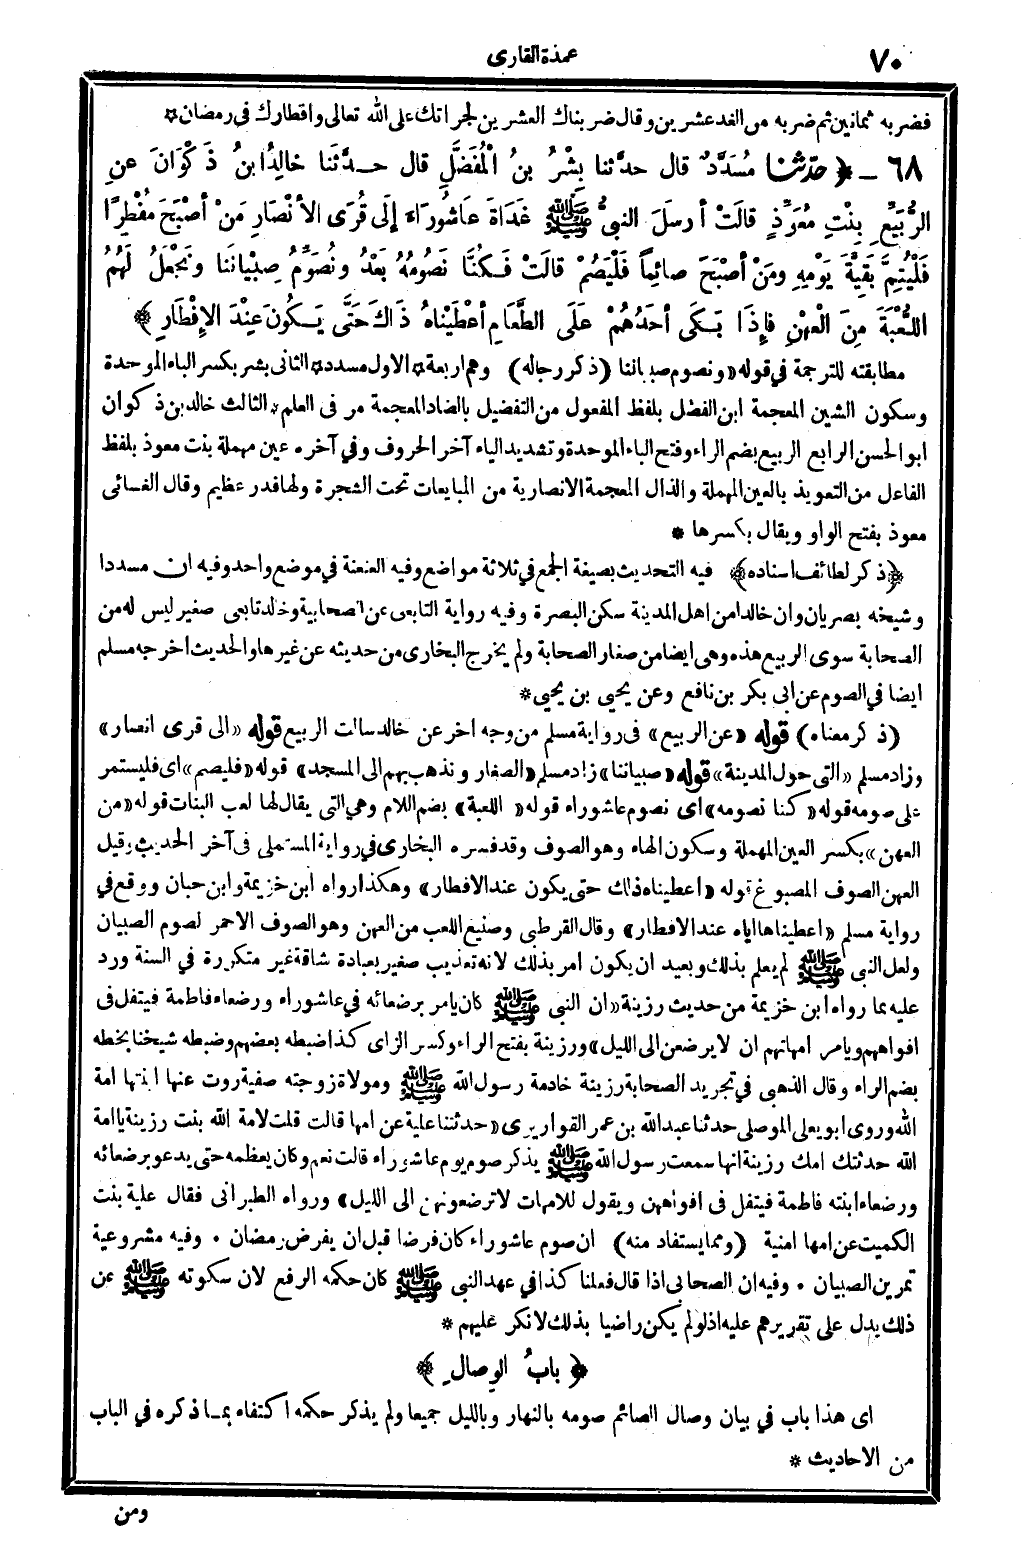 ٧٠
عمدة القارى
فضربه ثمانين ثم ضربه من الغد عشرين وقال ضربناك العشرين لجراءتك على الله تعالى وافطارك فى رمضان *
٦٨ ــ ﴿ حدّثنا مُسَدَّدٌ قال حدّثنا بِشْرُ بنُ الْمُفَضَّلِ قال حــدَّثَنا خالِدُ ابنُ ذَكْوَانَ عنِ
الرُّبَيِّعِ بِنْتِ مُعَوِّذٍ قالَتْ أرسَلَ النبىُّ ﷺ غَدَاةَ عَاشُورَاءَ إلَى قُرَى الأَنْصَارِ مَنْ أصْبَحَ مُفْطِرًا
فَلْيُتِمَّ بَقِيَّةَ يَوْمِهِ ومَنْ أصْبَحَ صائِماً فَلْيَصُمْ قالَتْ فَـكُنَّا نَصُومُهُ بَعْدُ ونُصَوِّمُ صِبْيَانَنا ونَجْعَلُ لَهُمُ
اللُّعْبَةَ مِنَ الْعِهْنِ فإذَا بَـكَى أحَدُهُمْ عَلَى الطَّعَامِ أعْطَيْنَاهُ ذَاكَ حَتَّى يَـكُونَ عِنْدَ الإفْطَارِ ﴾
مطابقته للترجمة فى قوله «ونصوم صبياننا (ذكر رجاله) وهم اربعة * الاول مسدد * الثانى بشر بكسر الباء الموحدة
وسكون الشين المعجمة ابن الفضل بلفظ المفعول من التفضيل بالضاد المعجمة مر فى العلم * الثالث خالد بن ذكوان
ابو الحسن الرابع الربيع بضم الراء وفتح الباء الموحدة وتشديد الياء آخر الحروف وفي آخره عين مهملة بنت معوذ بلفظ
الفاعل من التعويذ بالعين المهملة والذال المعجمة الانصارية من المبايعات تحت الشجرة ولها قدر عظيم وقال الغسانى
معوذ بفتح الواو ويقال بكسرها *
﴿ذكر لطائف اسناده﴾ فيه التحديث بصيغة الجمع فى ثلاثة مواضع وفيه العنعنة فى موضع واحد وفيه ان مسددا
وشيخه بصريان وان خالدا من اهل المدينة سكن البصرة وفيه رواية التابعى عن الصحابية وخالد تابعى صغير ليس له من
الصحابة سوى الربيع هذه وهى ايضا من صغار الصحابة ولم يخرج البخارى من حديثه عن غيرها والحديث اخرجه مسلم
ايضا في الصوم عن ابى بكر بن نافع وعن يحيى بن يحيى *
(ذكر معناه) قوله «عن الربيع» فى رواية مسلم من وجه اخر عن خالد سالت الربيع قوله «الى قرى انصار»
وزاد مسلم «التى حول المدينة» قوله «صبياننا» زاد مسلم «الصغار ونذهب بهم الى المسجد» قوله «فليصم» اى فليستمر
على صومه قوله «كنا نصومه» اى نصوم عاشوراء قوله «اللعبة» بضم اللام وهى التى يقال لها لعب البنات قوله «من
العهن» بكسر العين المهملة وسكون الهاء وهو الصوف وقد فسره البخارى في رواية المستملى فى آخر الحديث وقيل
العهن الصوف المصبوغ قوله «اعطيناه ذلك حتى يكون عند الافطار» وهكذا رواه ابن خزيمة وابن حبان ووقع في
رواية مسلم «اعطيناها اياه عند الافطار» وقال القرطبى وصنيع اللعب من العهن وهو الصوف الاحمر لصوم الصبيان
ولعل النبى ﷺ لم يعلم بذلك وبعيد ان يكون امر بذلك لانه تعذيب صغير بعبادة شاقة غير متكررة في السنة ورد
عليه بما رواه ابن خزيمة من حديث رزينة «ان النبى ﷺ كان يامر برضعائه في عاشوراء ورضعاء فاطمة فيتفل فى
افواههم ويامر امهاتهم ان لا يرضعن الى الليل» ورزينة بفتح الراء وكسر الزاى كذا ضبطه بعضهم وضبطه شيخنا بخطه
بضم الراء وقال الذهبى في تجريد الصحابة رزينة خادمة رسول الله ﷺ ومولاة زوجته صفية روت عنها ابنتها امة
الله وروى ابو يعلى الموصلى حدثنا عبد الله بن عمر القواريرى «حدثتنا علية عن امها قالت قلت لامة الله بنت رزينة يا امة
الله حدثتك امك رزينة انها سمعت رسول الله ﷺ يذكر صوم يوم عاشوراء قالت نعم وكان يعظمه حتى يدعو برضعائه
ورضعاء ابنته فاطمة فيتفل فى افواهن ويقول للامهات لا ترضعونهن الى الليل» ورواه الطبرانى فقال علية بنت
الكميت عن امها امنية (ومما يستفاد منه) ان صوم عاشوراء كان فرضا قبل ان يفرض رمضان ٠ وفيه مشروعية
تمرين الصبيان ٠ وفيه ان الصحابى اذا قال فعلنا كذا في عهد النبى ﷺ كان حكمه الرفع لان سكوته ﷺ عن
ذلك يدل على تقريرهم عليه اذ لو لم يكن راضيا بذلك لانكر عليهم *
﴿ بابُ الوِصالِ ﴾
اى هذا باب في بيان وصال الصائم صومه بالنهار وبالليل جميعا ولم يذكر حكمه اكتفاء بمــا ذكره في الباب
من الاحاديث *
ومن